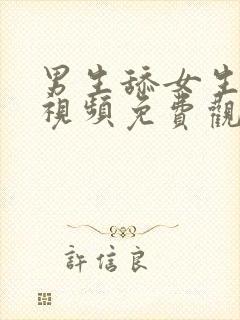 男生舔女生
視頻免費觀
許信良